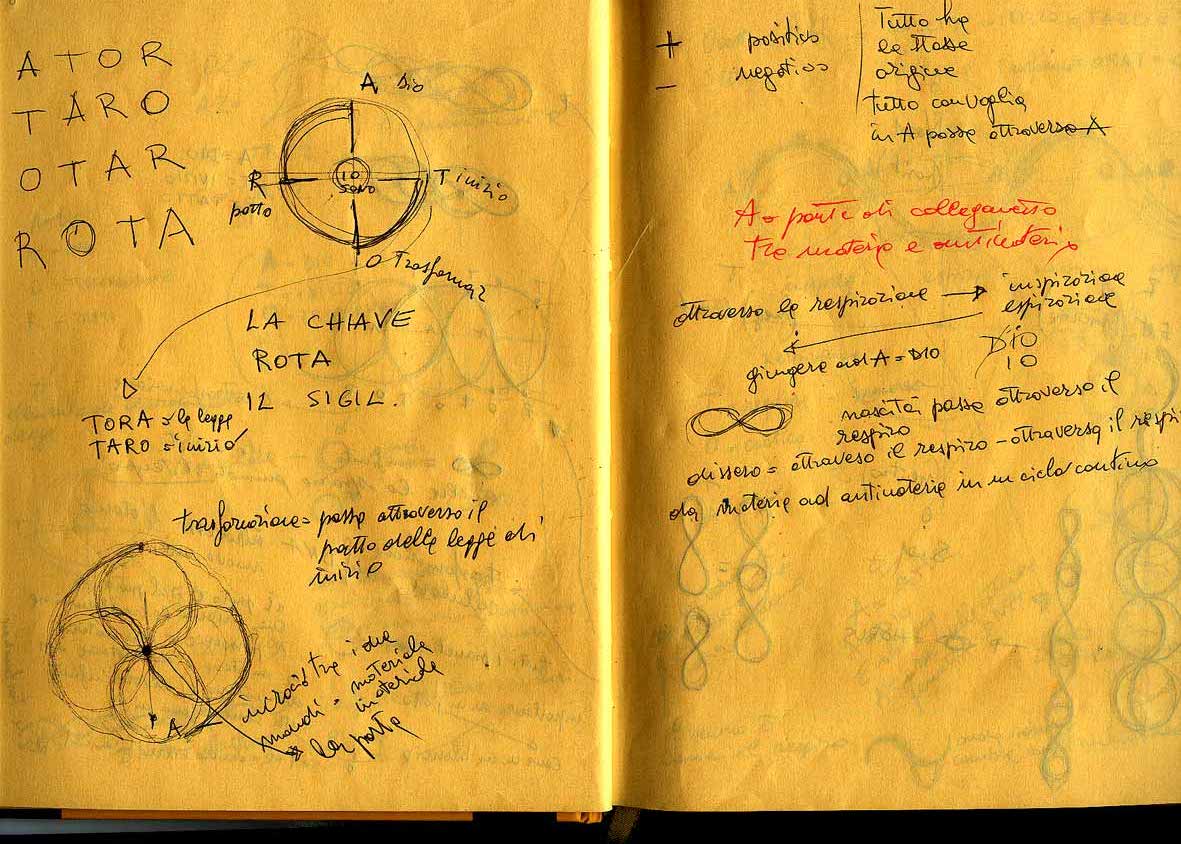 ATOR
TARO
OTAR
ROTA
A DIO
IO
SONO
R
patto
T inizio
O Trasformaz
LA CHIAVE
ROTA
IL SIGIL.
TORA = la legge
TARO = inizio
trasformazione = passa attraverso il
patto della legge di
inizio
A
incrocio tra i due
mondi = materiale
inateriale
la porta
+ positivo
- negativo
Tutto ha
la stessa
origine
tutto convoglia
in A passa attraverso A
A = ponte di collegamento
tra materia e antimateria
attraverso la respirazione → inspirazione
espirazione
giungere ad A = DIO
DIO
IO
nascita passa attraverso il
respiro
dissero = attraveso il respiro - attraversa il respi
da materia ad antimateria in un ciclo continuo